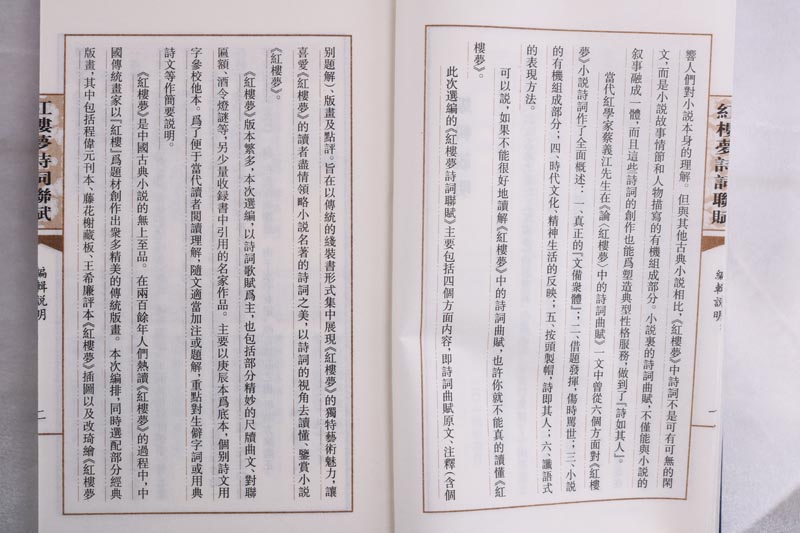 紅樓夢詩詞聯賦
編輯説明
一
響人們對小説本身的理解。但與其他古典小説相比，《紅樓夢》中詩詞不是可有可無的閑
文，而是小説故事情節和人物描寫的有機組成部分。小説裏的詩詞曲賦，不僅能與小説的
叙事融成一體，而且這些詩詞的創作也能爲塑造典型性格服務，做到了『詩如其人』。
當代紅學家蔡義江先生在《論〈紅樓夢〉中的詩詞曲賦》一文中曾從六個方面對《紅樓
夢》小説詩詞作了全面概述：一、真正的『文備衆體』；二、借題發揮，傷時駡世；三、小説
的有機組成部分；四、時代文化、精神生活的反映；五、按頭製帽，詩即其人；六、讖語式
的表現方法。
可以説，如果不能很好地讀解《紅樓夢》中的詩詞曲賦，也許你就不能真的讀懂《紅
樓夢》。
此次選編的《紅樓夢詩詞聯賦》主要包括四個方面内容，即詩詞曲賦原文、注釋（含個
別題解）、版畫及點評。旨在以傳統的綫裝書形式集中展現《紅樓夢》的獨特藝術魅力，讓
喜愛《紅樓夢》的讀者盡情領略小説名著的詩詞之美，以詩詞的視角去讀懂、鑒賞小説
《紅樓夢》。
《紅樓夢》版本繁多，本次選編，以詩詞歌賦爲主，也包括部分精妙的尺牘曲文、對聯
匾額、酒令燈謎等，另少量收録書中引用的名家作品。主要以庚辰本爲底本，個別詩文用
字參校他本。爲了便于當代讀者閲讀理解，隨文適當加注或題解，重點對生僻字詞或用典
詩文等作簡要説明。
《紅樓夢》是中國古典小説的無上至品。在兩百餘年人們熱讀《紅樓夢》的過程中，中
國傳統畫家以『紅樓』爲題材創作出衆多精美的傳統版畫。本次編排，同時選配部分經典
版畫，其中包括程偉元刊本、藤花榭藏板、王希廉評本《紅樓夢》插圖以及改琦繪《紅樓夢
紅樓夢詩詞聯賦
編輯説明
二